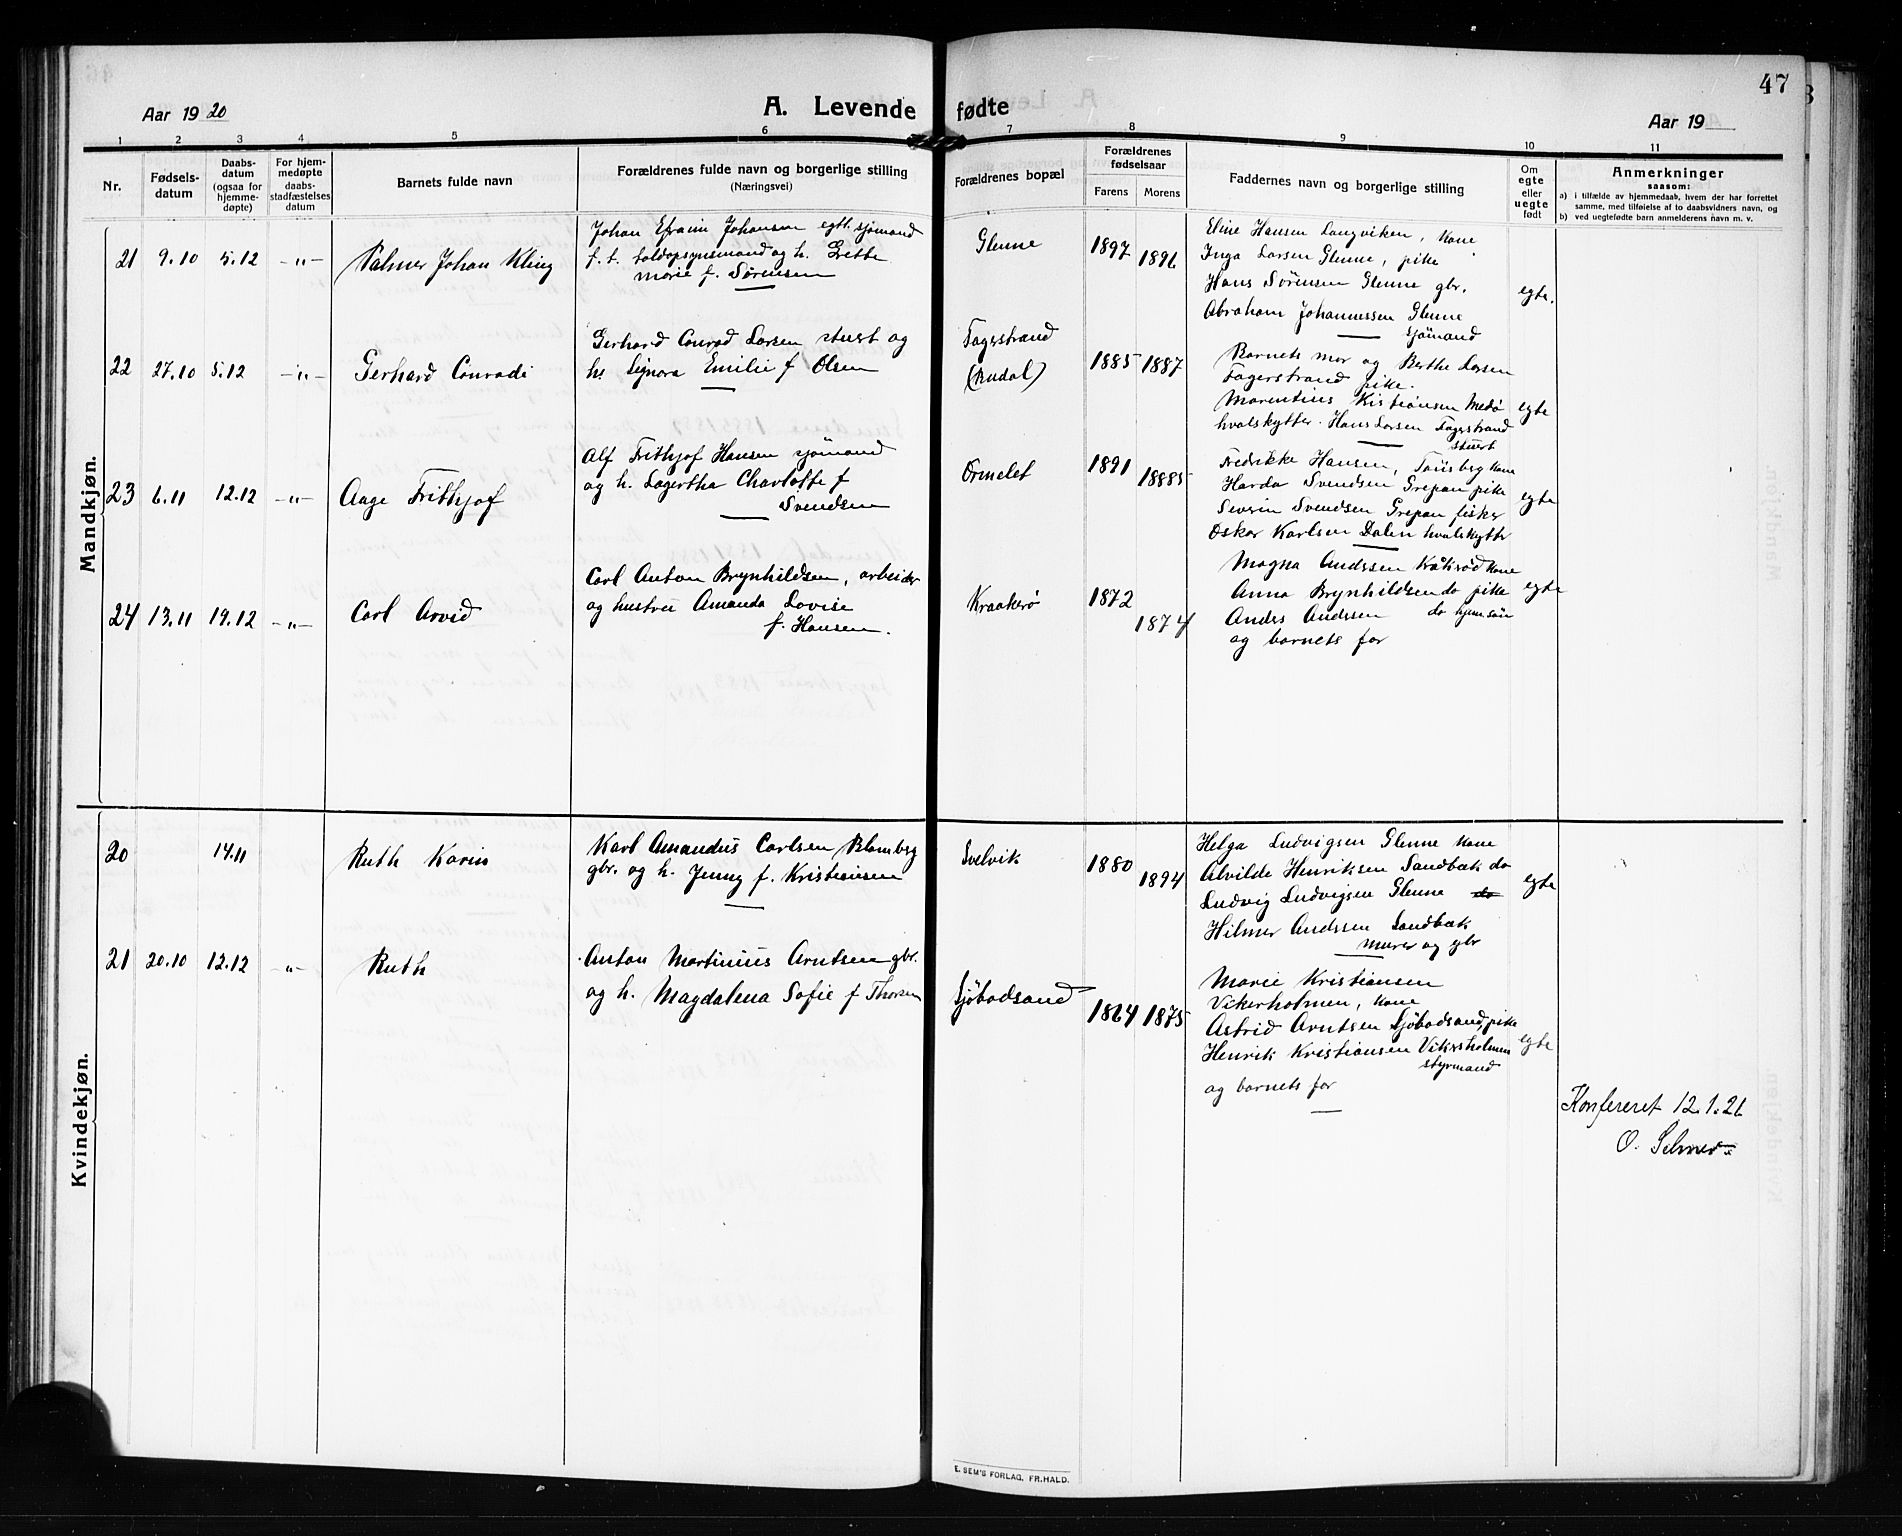 47
Aar 1920
A. Levende fødte
Aar 19
1 2 3 4 5 6 7 8 9 10 11
Nr.
Fødsels-
datum
Daabs-
datum
(ogsaa for
hjemme-
døpte)
For hjem-
medøpte
daabs-
stadfæstelses
datum
Barnets fulde navn
Forældrenes fulde navn og borgerlige stilling
(Næringsvei)
Forældrenes bopæl
Forældrenes
fødselsaar
Farens Morens
Faddernes navn og borgerlige stilling
Om
egte
eller
uegte
født
Anmerkninger
saasom:
a) i tilfælde av hjemmedaab, hvem der har forrettet
samme, med tilføielse af to daabsvidners navn, og
b) ved uegtefødte barn anmelderens navn m. v.
Mandkjøn.
21 9.10 5.12 -"- Palmer Johan Kling
Johan Efraim Johansen egtm. sjømand
f. t. toldopsynsmand og h. Grette
Marie f. Sørensen
Glenne
1897 1896
Eline Hansen Langviken, Kone
Inga Larsen Glenne, pike
Hans Sørensen Glenne gbr.
Abraham Johannessen Glenne
sjømand
egte.
22 27.10 5.12 -"- Gerhard Conradi
Gerhard Conrad Larsen stuert og
h. Signora Emilie f Olsen
Fagerstrand
(Rudal)
1885 1887
Barnets mor og Berthe Larsen
Fagerstrand pike.
Marentius Kristiansen Medø
hvalskytter. Hans Larsen Fagerstrand
stuert
egte
23 6.11 12.12 -"- Aage Frithjof
Alf Frithjof Hansen sjømand
og h. Lagertha Charlotte f
Svendsen
Ormelet
1891 18885
Fredrikke Hansen, Tønsberg kone
Harda Svendsen Grepan pike
Severin Svendsen Grepan fisker
Oskar Karlsen Dalen hvalskytte
egte
24 13.11 19.12 -"- Carl Arvid
Carl Anton Brynhildsen, arbeider
og hustru Amanda Lovise
f. Hansen.
Kraakerø
1872 1874
Magna Anderssen Kråkrød kone
Anna Brynhildsen do pike
Anders Anderssen do hjemsøn
og barnets far
egte
Kvindekjøn.
20 14.11 Ruth Karin
Karl Amandus Carlsen Blomberg
gbr. og h. Jenny f. Kristiansen
Svelvik
1880 1894
Helga Ludvigsen Glenne kone
Alvilde Henriksen Sandbæk do
Ludvig Ludvigsen Glenne do
Hilmer Anderssen Sandbæk
murer og gbr
egte
21 20.10 12.12 -"- Ruth
Anton Martinius Arntsen gbr.
og h. Magdalena Sofie f Thorsen
Sjøbodsand
1864 1875
Marie Kristiansen
Vikerholmen, kone
Astrid Arntsen Sjøbodsand, pike
Henrik Kristiansen Vikerholmen
styrmand
og barnets far
egte
Konfereret 12.1.21
O. Selmer
E. SEM'S FORLAG, FR.HALD.